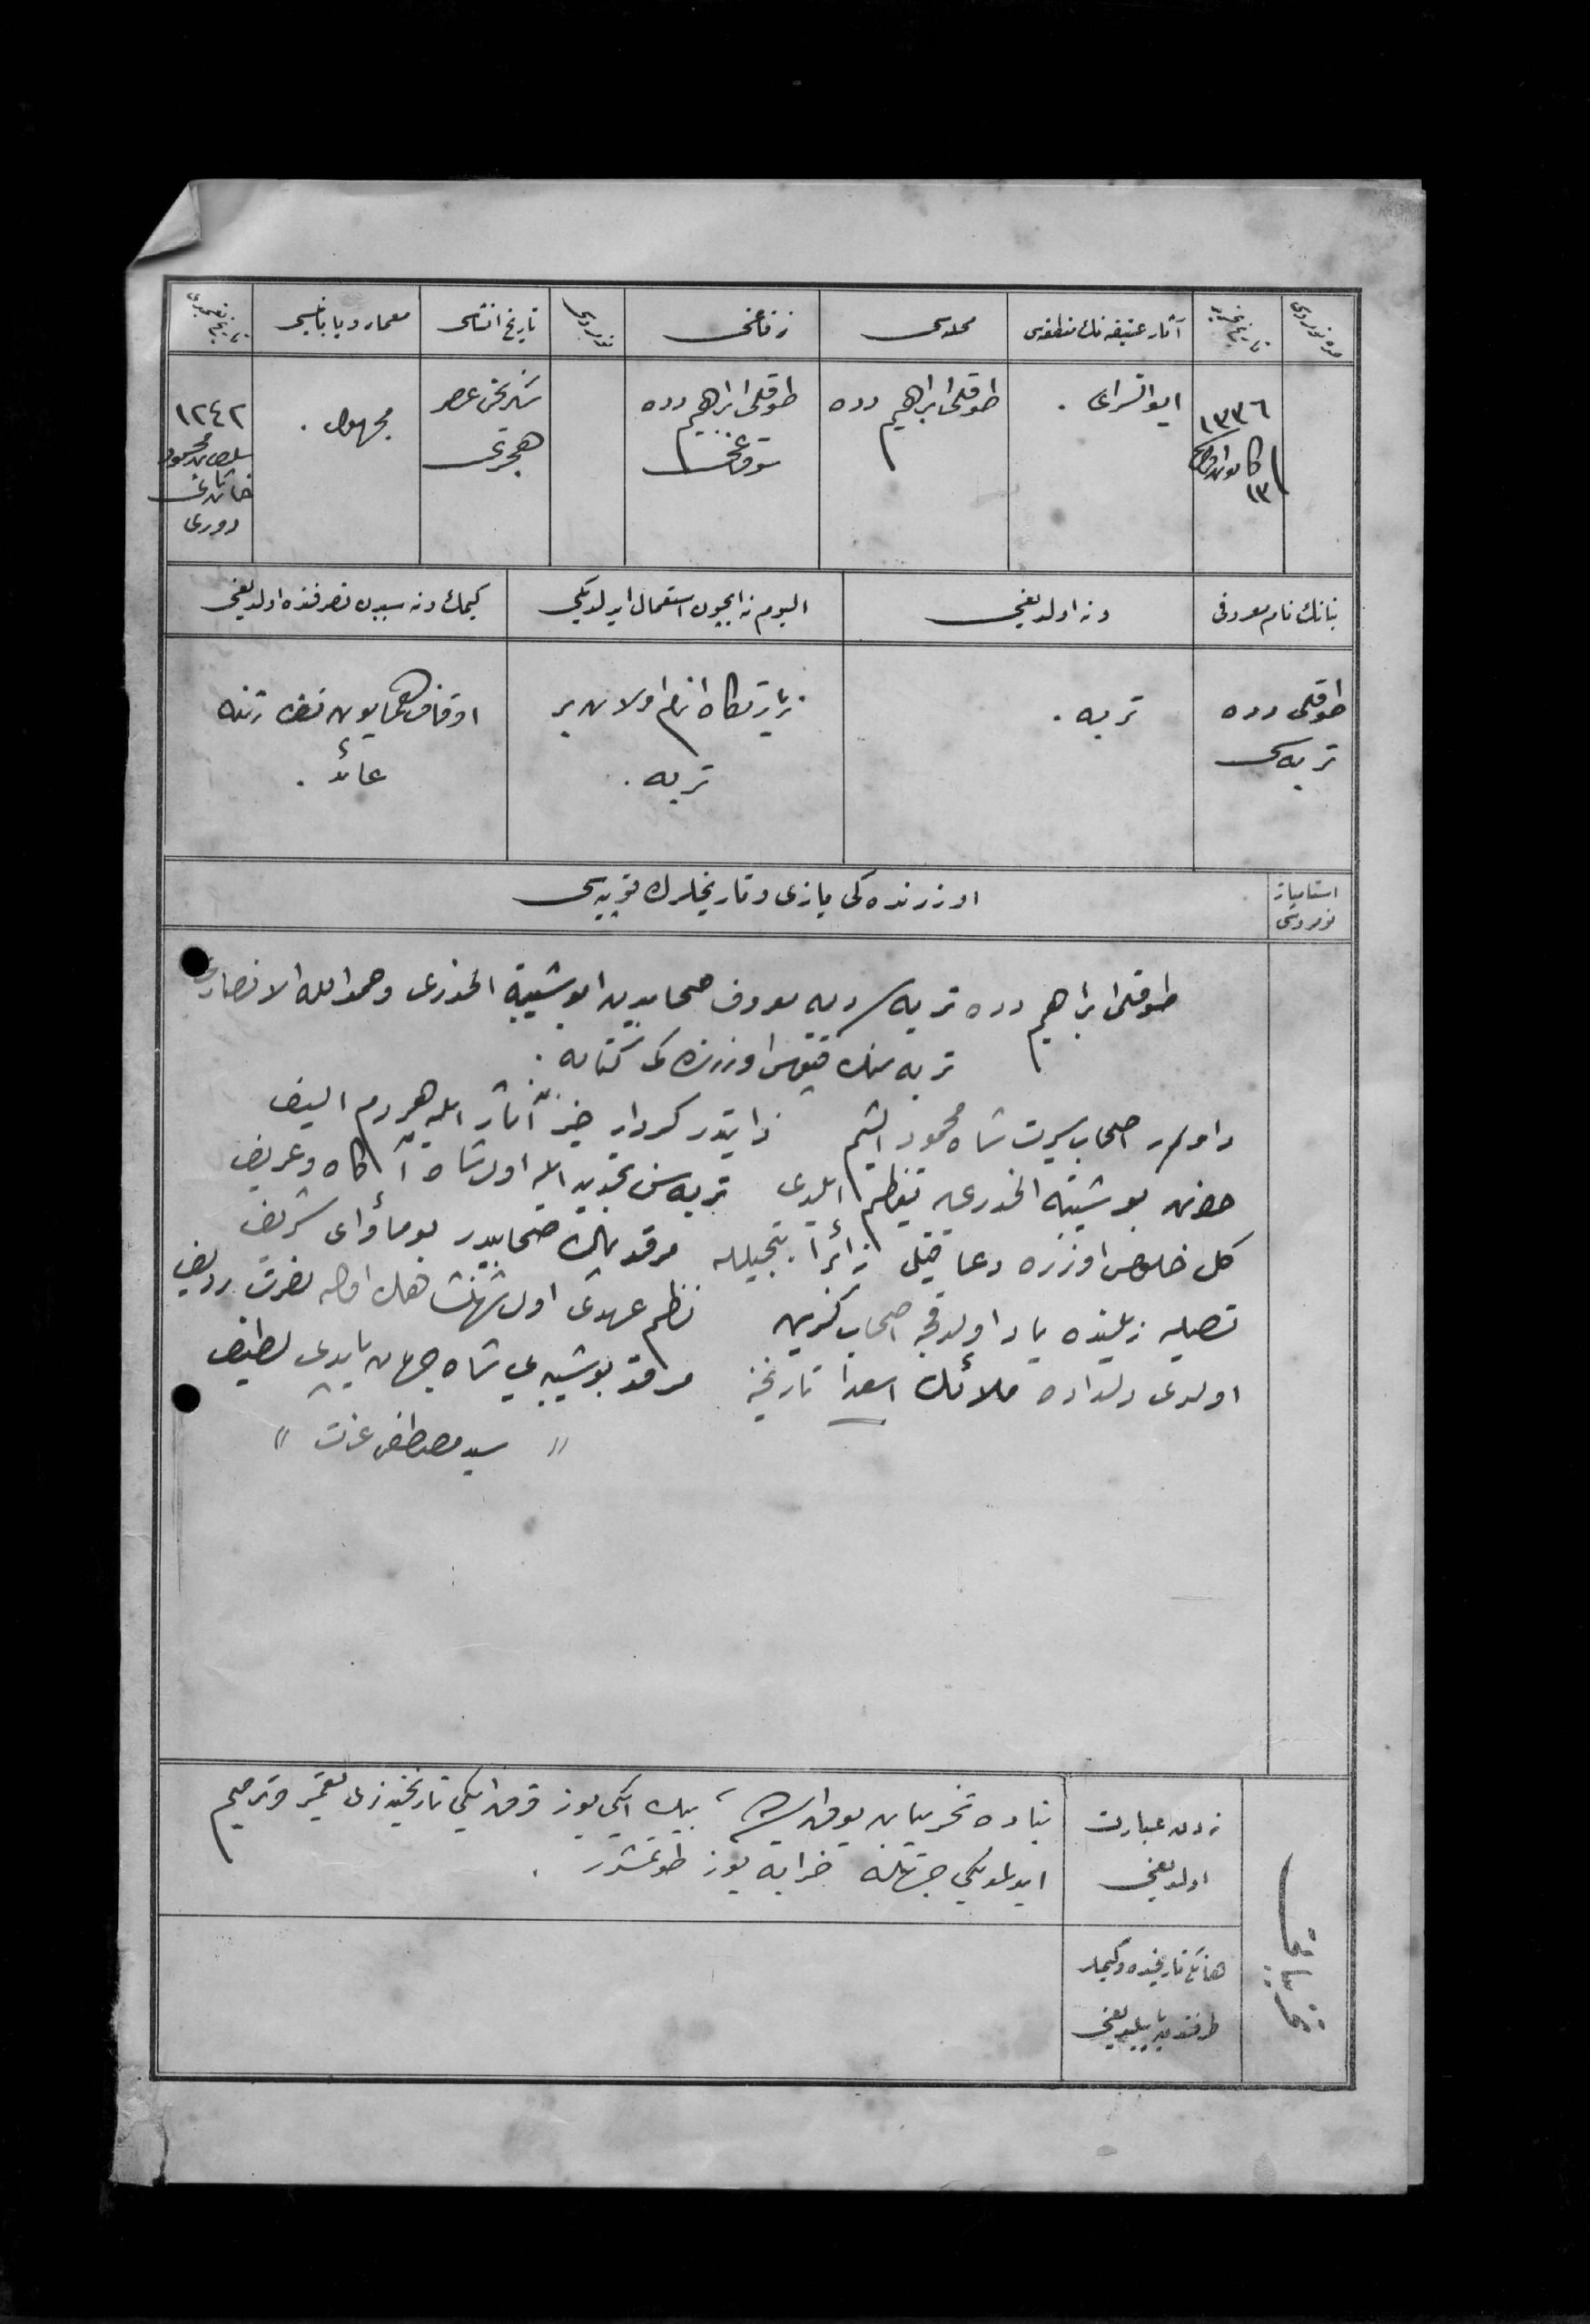 صره نومروسی
تاریخ تحریر
آثار عتیقه نك منطقه سی
محله سی
زقاغی
نومروسی
تاریخ انشاسی
معمار و یا بانیسی
تاریخ تعمیری
١٣٣٦
١٣ كانون اول
ايوانسرای .
طوقلی ابراهیم دده
طوقلی ابراهیم دده
سوقاغی
سكزنجی عصر
هجری
مجهول .
١٢٤٢
سلطان محمود
خان ثانی
دوری
بنانك نام معروفی
و نه اولدیغی
الیوم نه ایچون استعمال ایدلدیكی
كیمك و نه سببدن تصرفنده اولدیغی
طوقلی دده
تربه سی
تربه .
زیارتكاه انام اولان بر
تربه .
اوقاف همایون نظارتنه
عائد .
استامپاژ
نومروسی
اوزرنده كی یازی و تاریخلرك قوپیه سی
طوقلی ابراهیم دده تربه سی دیه معروف صحابه دن ابو شیبة الخدری و حمدالله الانصاری
تربه سنك قپوسی اوزرنده كی كتابه .
داور اصحاب سیرت شاه محمود الشیم ذاتیدر كردار خیر آثار ایله هر دم الیف
حضرت بو شیبة الخدری یه تعظیم ایلدی تربه سن تجدید ایله اول شاه آگاه و عریف
كل خلوص اوزره دعا قیل زائرا تبجیلله مرقد پاك صحابیدر بو مأوای شریف
نظم عهدی اول شهنشاهك اوله نصرت ردیف
اولدی دلداده ملائك اسعدا تاریخنه مرقد بو شیبه یی شاه جهان یاپدی لطیف
" سید مصطفی عزت "
خرابیت
نه دن عبارت
اولدیغی
بناده تخریبات یوق ایسه ده ، بیك ایكی یوز قرق ایكی تاریخندنبری تعمیر و ترمیم
ایدلمدیكی جهتله خرابه یوز طوتمشدر .
هانكی تاریخده و كیملر
طرفندن یاپیلدیغی